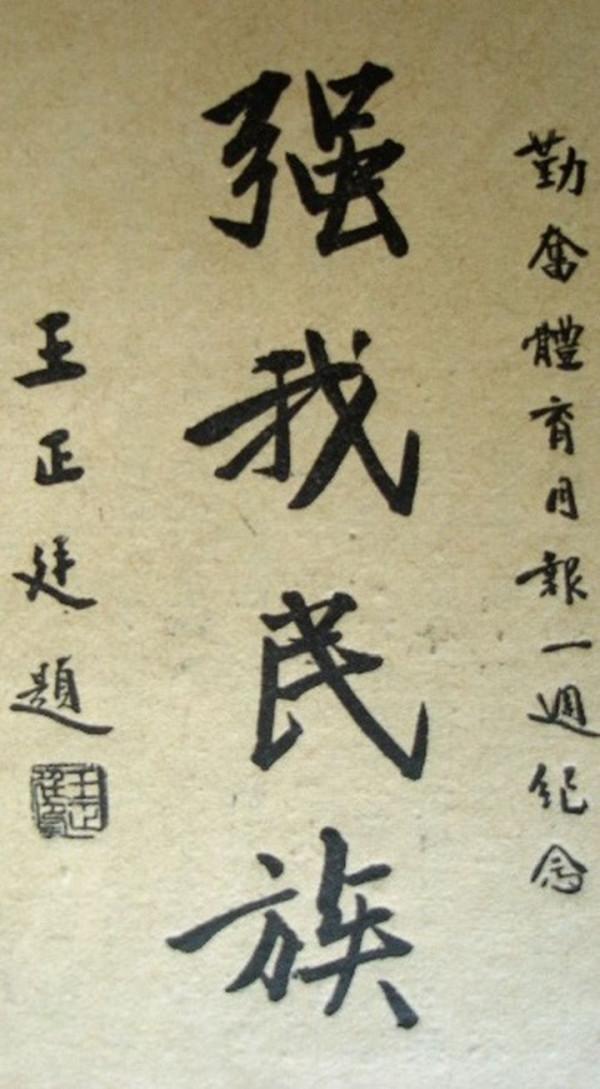 勤奮體育月報一週紀念
强我民族
王正廷題